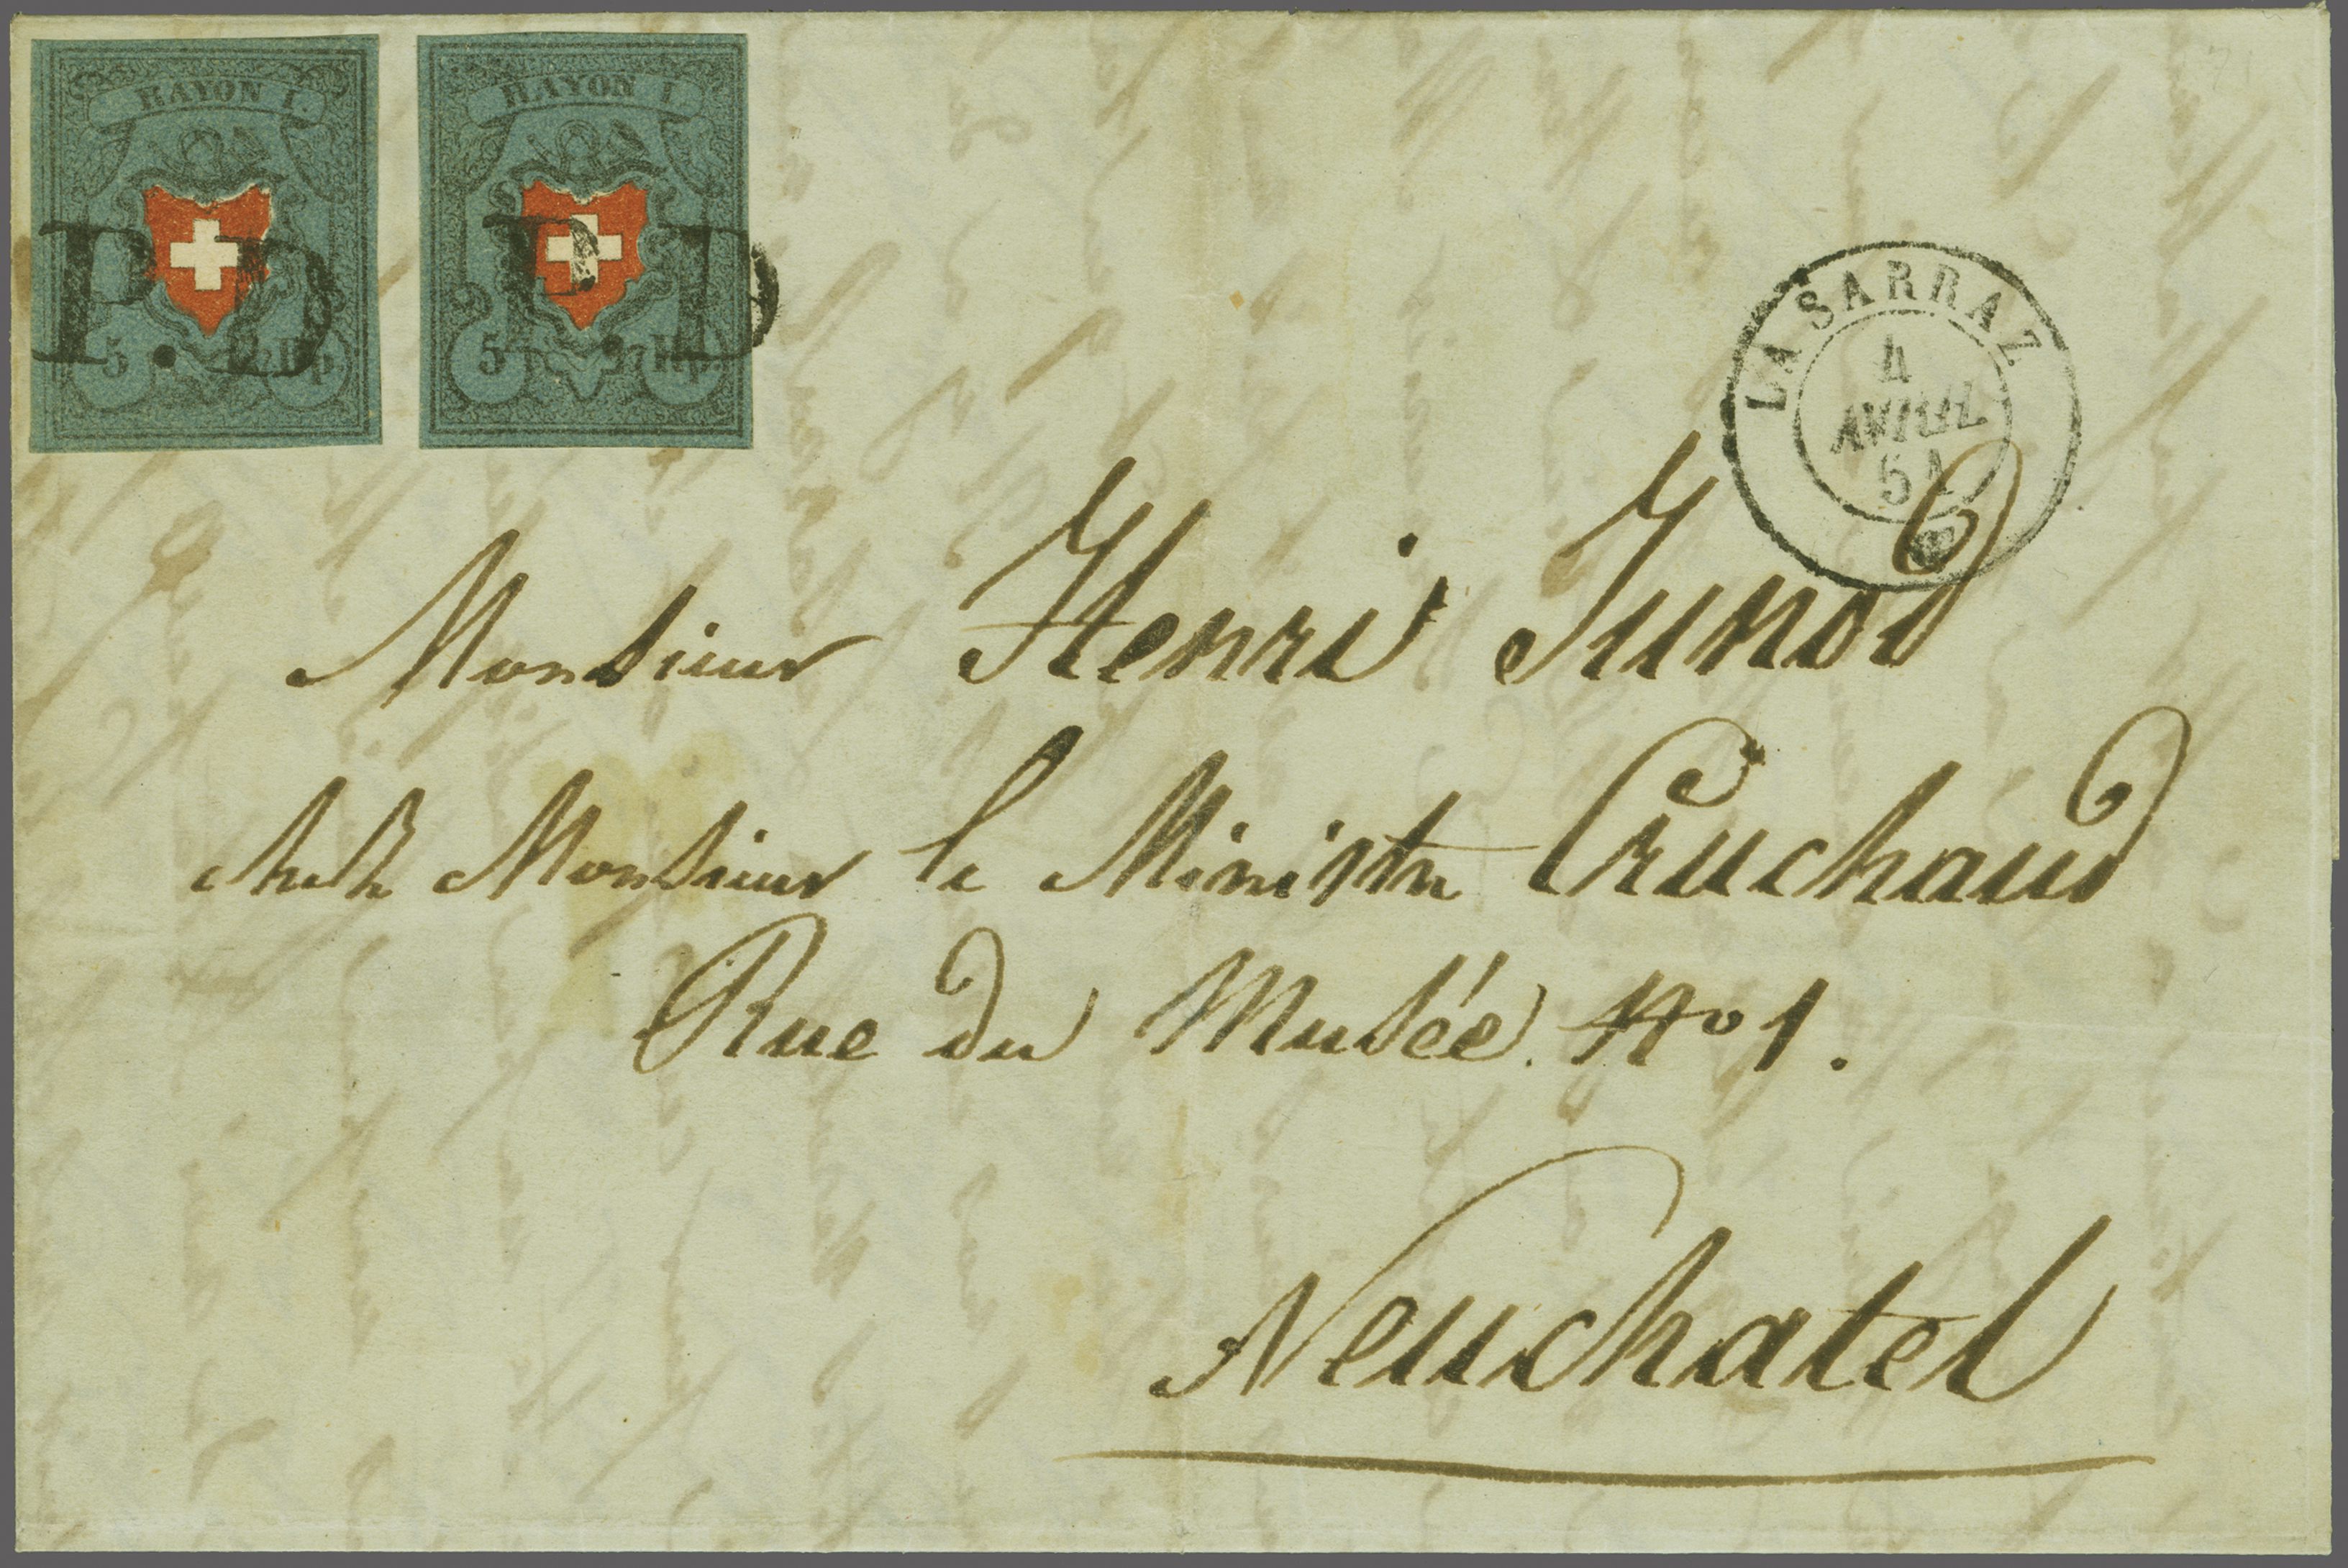 RAYON I.
5 Rp.
P.D
RAYON I
5 Rp.
P.D
LA SARRAZ
4
AVRIL
51
Monsieur Henri Junod
chez Monsieur le Ministre Cruchaud
Rue du Musée. No 1.
Neuchatel